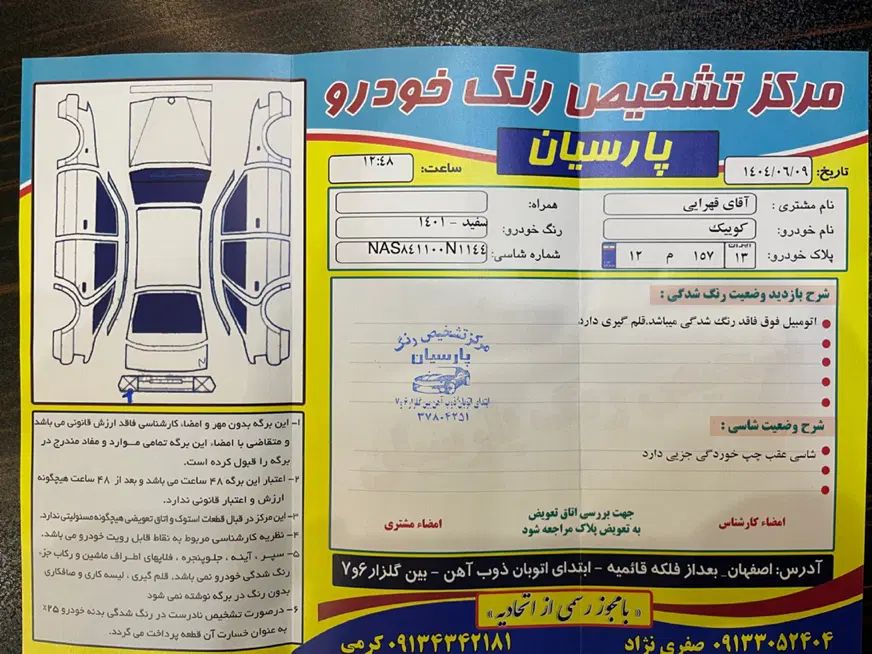 مرکز تشخیص رنگ خودرو
پارسیان
تاریخ: ۱۴۰۴/۰۶/۰۹
ساعت: ۱۲:۴۸
نام مشتری : آقای قهرایی
همراه:
نام خودرو: کوییک
رنگ خودرو: سفید - ۱۴۰۱
پلاک خودرو: ایران ۱۳ ۱۵۷ م ۱۲
شماره شاسی: NAS۸۴۱۱۰۰N۱۱۴۴
شرح بازدید وضعیت رنگ شدگی :
اتومبیل فوق فاقد رنگ شدگی میباشد.قلم گیری دارد
مرکز تشخیص رنگ
پارسیان
ابتدای اتوبان ذوب آهن بین گلزار ۶ و ۷
۳۷۸۰۴۲۵۱
شرح وضعیت شاسی :
شاسی عقب چپ خوردگی جزیی دارد
امضاء کارشناس
جهت بررسی اتاق تعویض
به تعویض پلاک مراجعه شود
امضاء مشتری
آدرس: اصفهان_ بعداز فلکه قائمیه - ابتدای اتوبان ذوب آهن - بین گلزار ۶و۷
«بامجوز رسمی از اتحادیه»
۰۹۱۳۳۰۵۲۴۰۴ صفری نژاد
۰۹۱۳۴۳۴۲۱۸۱ کرمی
۱- این برگه بدون مهر و امضاء کارشناسی فاقد ارزش قانونی می باشد
و متقاضی با امضاء این برگه تمامی موارد و مفاد مندرج در
برگه را قبول کرده است.
۲- اعتبار این برگه ۴۸ ساعت می باشد و بعد از ۴۸ ساعت هیچگونه
ارزش و اعتبار قانونی ندارد.
۳- این مرکز در قبال قطعات استوک و اتاق تعویضی هیچگونه مسئولیتی ندارد.
۴- نظریه کارشناسی مربوط به نقاط قابل رویت خودرو می باشد.
۵- سپر ، آینه ، جلوپنجره ، فلاپهای اطراف ماشین و رکاب جزء
رنگ شدگی خودرو نمی باشد. قلم گیری ، لیسه کاری و صافکاری
بدون رنگ در برگه نوشته نمی شود
۶- درصورت تشخیص نادرست در رنگ شدگی بدنه خودرو ۲۵٪
به عنوان خسارت آن قطعه پرداخت می گردد.